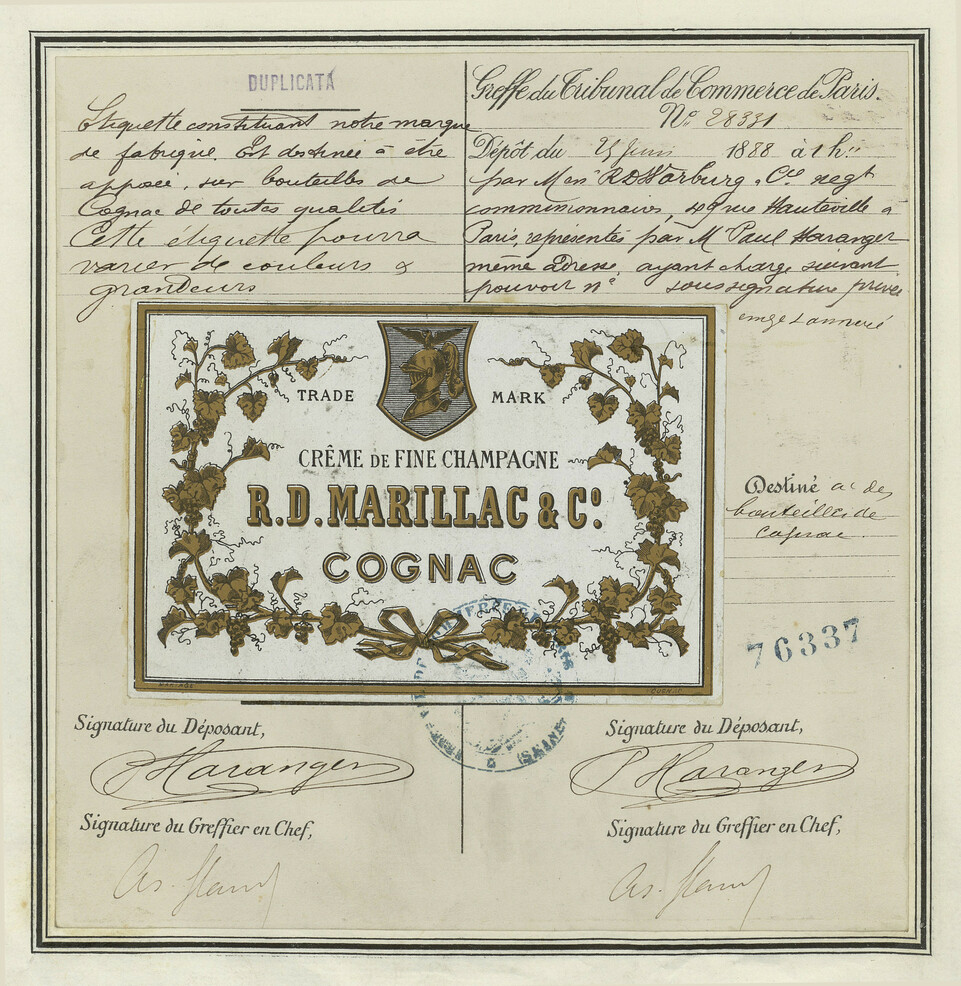 DUPLICATA
Etiquette constituant notre marque
de fabrique. Est destinée à être
apposée, sur bouteilles de
Cognac de toutes qualités
Cette étiquette pourra
varier de couleurs &
grandeurs
Greffe du Tribunal de Commerce de Paris.
N° 28331
Dépôt du Juin 1888 à 1 h
par Mess RD Warburg & Cie negt
commissionnaires, 49 rue Hauteville à
Paris, représentés par Mr Paul Haranger
même adresse, ayant charge suivant
pouvoir n° sous signature privée
TRADE MARK
CRÊME DE FINE CHAMPAGNE
R.D. MARILLAC & Co.
COGNAC
COGNAC
Destiné à des
bouteilles de
cognac
76337
(SEINE)
Signature du Déposant,
P Haranger
Signature du Greffier en Chef,
Signature du Déposant,
P Haranger
Signature du Greffier en Chef,